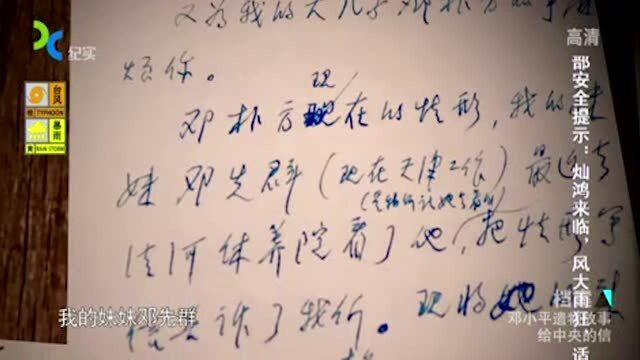 又为我的大儿子邓朴方的事
烦你。
现
邓朴方现在的情形,我的妹
妹邓先群(现在天津工作)最近去
清河休养院看了他,把情形写
告诉了我们。现将她的
纪实
高清
台风
橙 TYPHOON
暴雨
黄 RAIN STORM
部安全提示:灿鸿来临,风大雨狂,适
我的妹妹邓先群
档
邓小平遗物故事
给中央的信